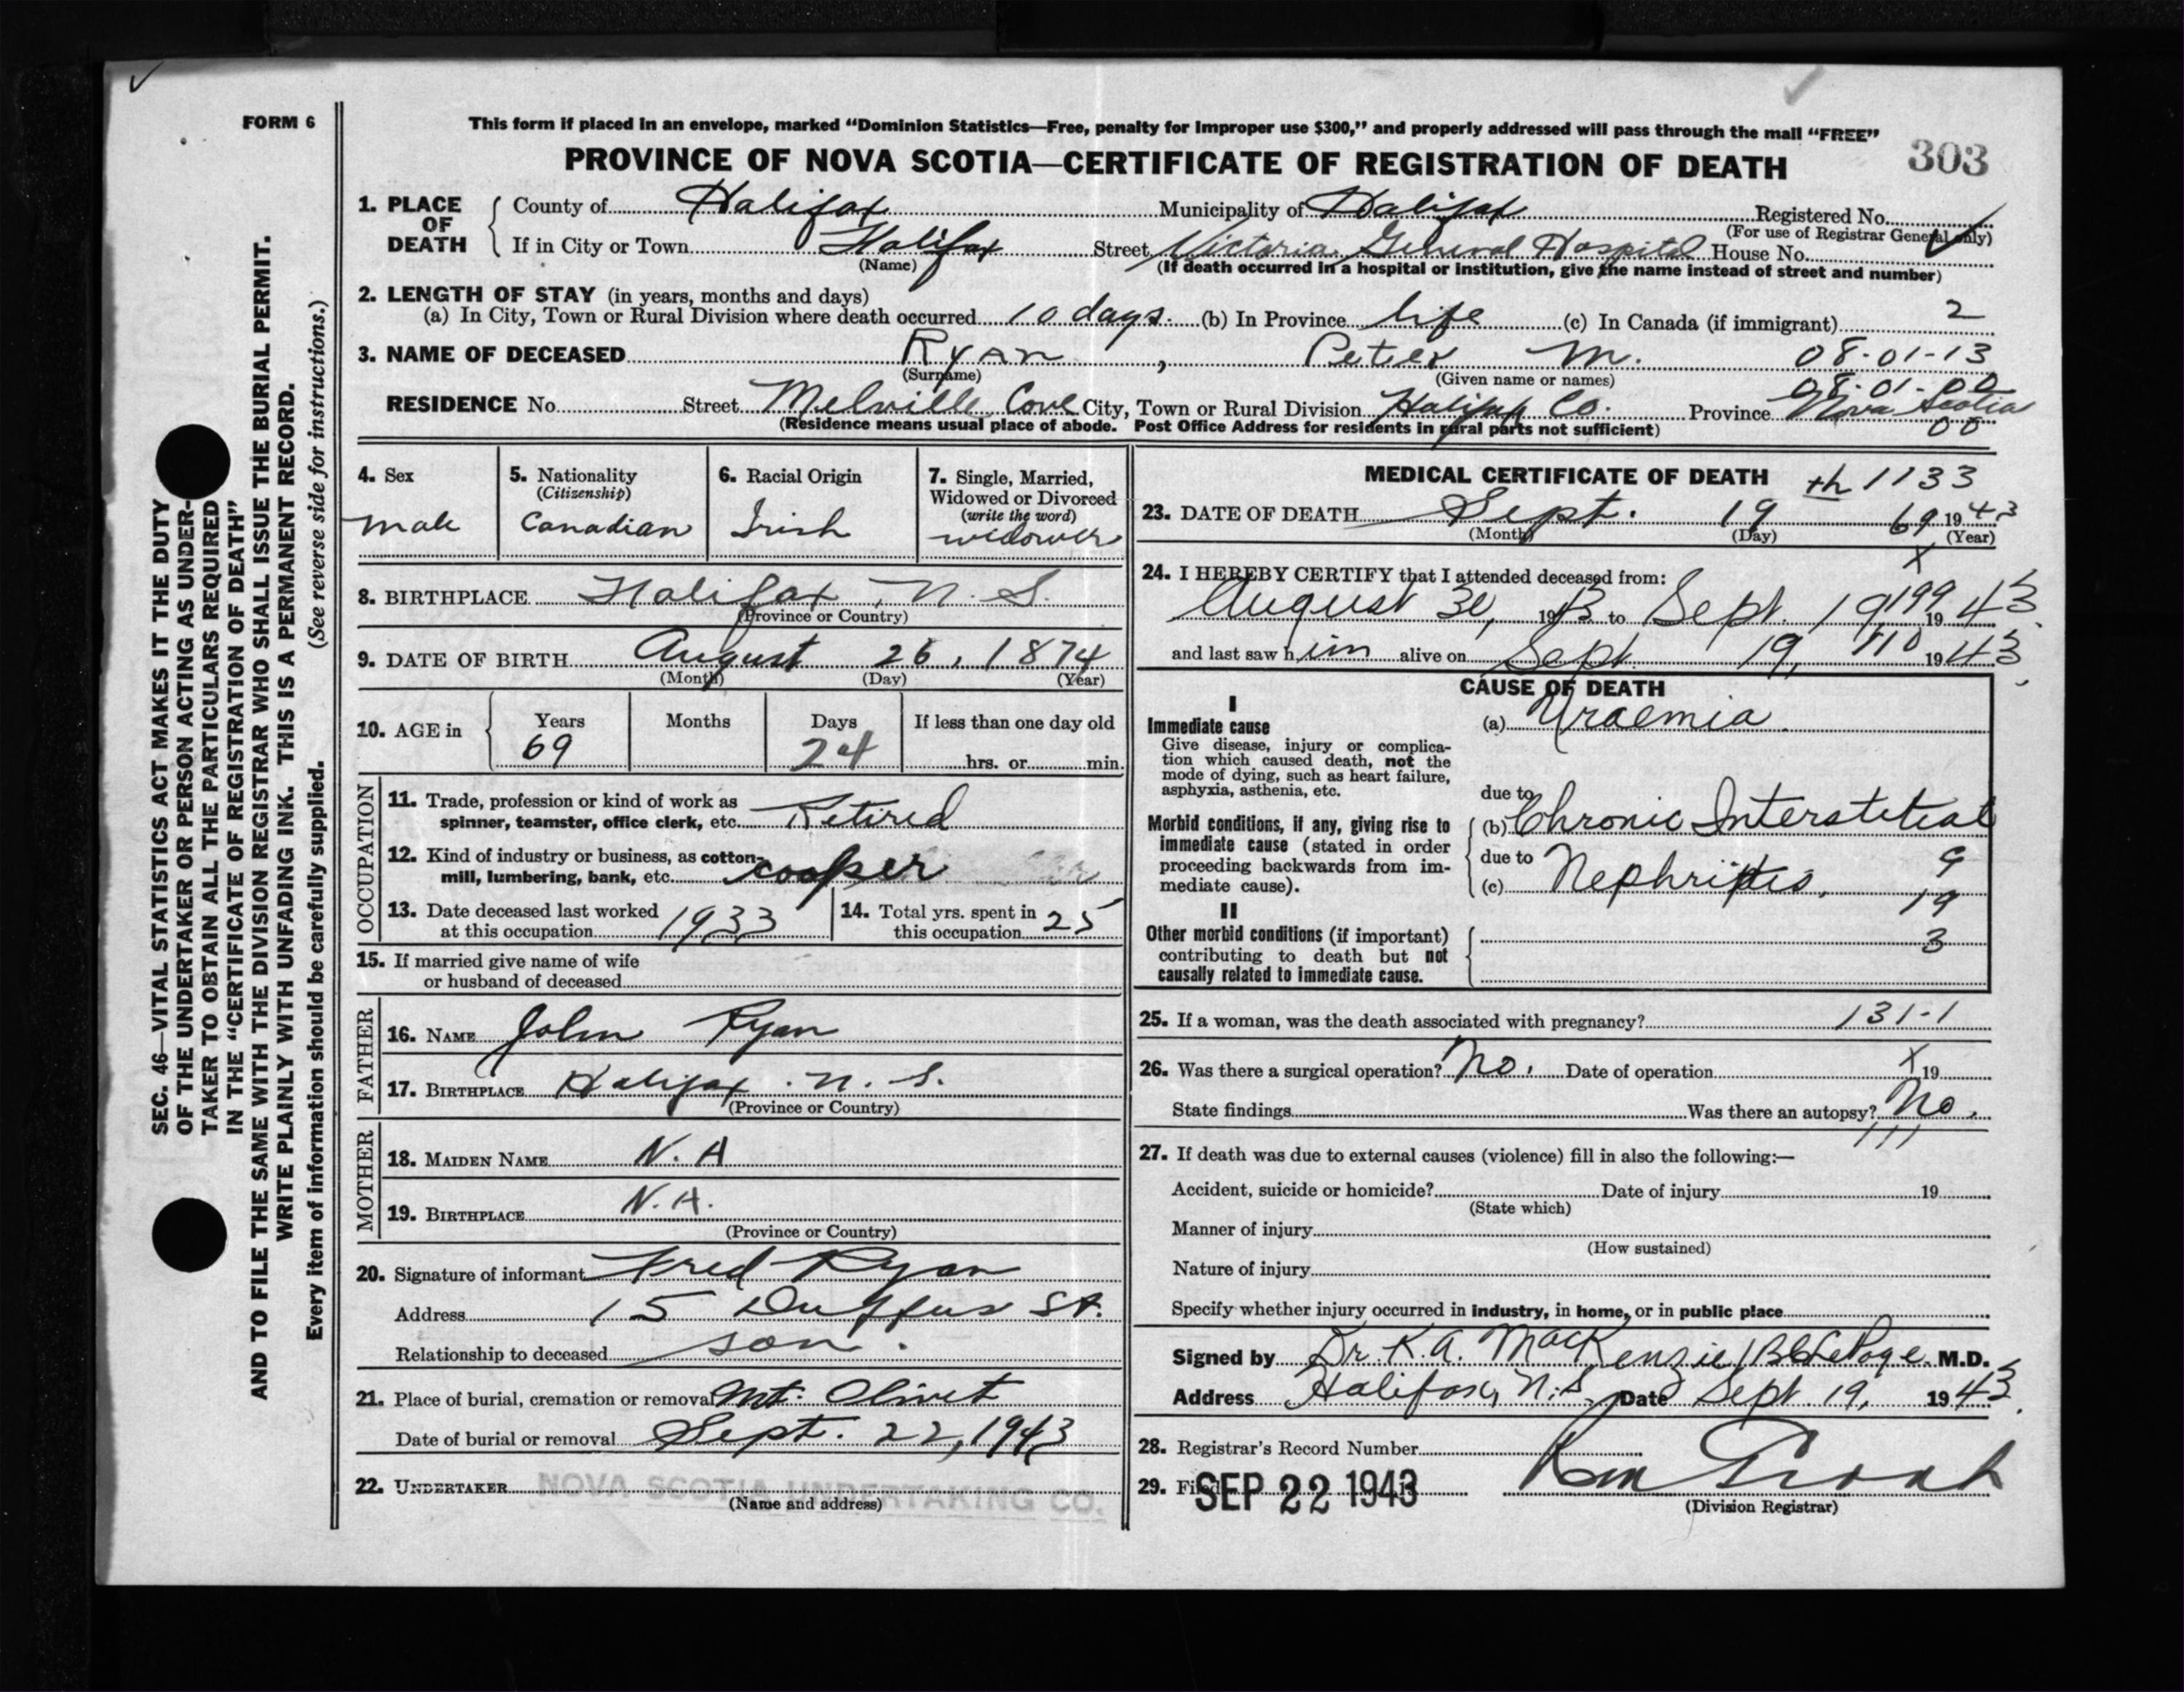 FORM 6
This form if placed in an envelope, marked “Dominion Statistics—Free, penalty for improper use $300,” and properly addressed will pass through the mail “FREE”
PROVINCE OF NOVA SCOTIA—CERTIFICATE OF REGISTRATION OF DEATH
303
1. PLACE OF DEATH
County of Halifax Municipality of Halifax Registered No.
(For use of Registrar General only)
If in City or Town Halifax Street Victoria General Hospital House No.
(Name) (If death occurred in a hospital or institution, give the name instead of street and number)
2. LENGTH OF STAY (in years, months and days)
(a) In City, Town or Rural Division where death occurred 10 days. (b) In Province life (c) In Canada (if immigrant) 2
3. NAME OF DECEASED Ryan , Peter M. 08-01-13
(Surname) (Given name or names) 08-01-00
RESIDENCE No. Street Melville Cove City, Town or Rural Division Halifax Co. Province Nova Scotia
(Residence means usual place of abode. Post Office Address for residents in rural parts not sufficient) 00
4. Sex
male
5. Nationality
(Citizenship)
Canadian
6. Racial Origin
Irish
7. Single, Married,
Widowed or Divorced
(write the word)
widower
8. BIRTHPLACE Halifax, N. S.
(Province or Country)
9. DATE OF BIRTH August 26, 1874
(Month) (Day) (Year)
10. AGE in Years Months Days If less than one day old
69 24 hrs. or min.
OCCUPATION
11. Trade, profession or kind of work as
spinner, teamster, office clerk, etc. Retired
12. Kind of industry or business, as cotton-
mill, lumbering, bank, etc. cooper
13. Date deceased last worked
at this occupation 1933
14. Total yrs. spent in
this occupation 25
15. If married give name of wife
or husband of deceased
FATHER
16. NAME John Ryan
17. BIRTHPLACE Halifax. N. S.
(Province or Country)
MOTHER
18. MAIDEN NAME N. A
19. BIRTHPLACE N. A.
(Province or Country)
20. Signature of informant Fred Ryan
Address 15 Duffus St.
Relationship to deceased son.
21. Place of burial, cremation or removal Mt. Olivet
Date of burial or removal Sept. 22, 1943
22. UNDERTAKER NOVA SCOTIA UNDERTAKING CO.
(Name and address)
MEDICAL CERTIFICATE OF DEATH th 1133
23. DATE OF DEATH Sept. 19 69 1943
(Month) (Day) (Year)
x
24. I HEREBY CERTIFY that I attended deceased from:
August 30, 1943 to Sept. 19, 199 1943
and last saw him alive on Sept 19, 110 1943
CAUSE OF DEATH
I
Immediate cause
Give disease, injury or complica-
tion which caused death, not the
mode of dying, such as heart failure,
asphyxia, asthenia, etc.
(a) Uraemia
due to
Morbid conditions, if any, giving rise to
immediate cause (stated in order
proceeding backwards from im-
mediate cause).
(b) Chronic Interstitial
due to 9
(c) Nephritis. 19
II
Other morbid conditions (if important)
contributing to death but not
causally related to immediate cause.
3
25. If a woman, was the death associated with pregnancy? 131-1
26. Was there a surgical operation? No. Date of operation x 19
State findings Was there an autopsy? No.
111
27. If death was due to external causes (violence) fill in also the following:—
Accident, suicide or homicide? Date of injury 19
(State which)
Manner of injury
(How sustained)
Nature of injury
Specify whether injury occurred in industry, in home, or in public place
Signed by Dr. K. A. MacKenzie / B LePage M.D.
Address Halifax, N. S. Date Sept. 19, 1943
28. Registrar's Record Number
29. Filed SEP 22 1943
(Division Registrar)
SEC. 46—VITAL STATISTICS ACT MAKES IT THE DUTY
OF THE UNDERTAKER OR PERSON ACTING AS UNDER-
TAKER TO OBTAIN ALL THE PARTICULARS REQUIRED
IN THE “CERTIFICATE OF REGISTRATION OF DEATH”
AND TO FILE THE SAME WITH THE DIVISION REGISTRAR WHO SHALL ISSUE THE BURIAL PERMIT.
WRITE PLAINLY WITH UNFADING INK. THIS IS A PERMANENT RECORD.
Every item of information should be carefully supplied. (See reverse side for instructions.)